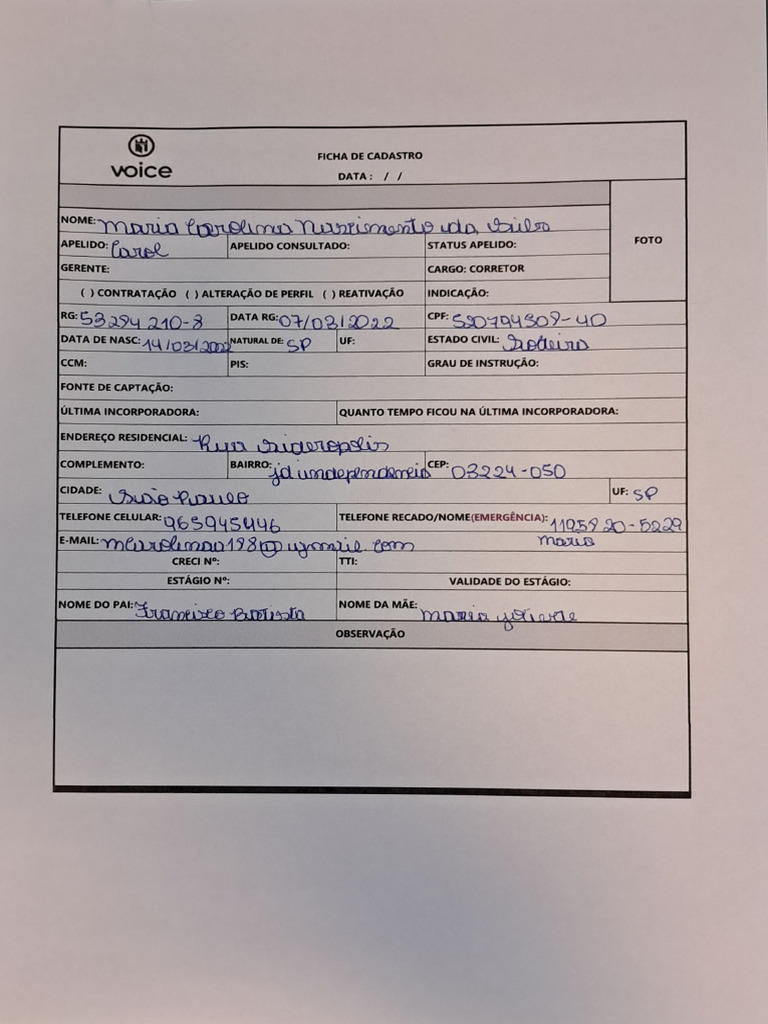 voice
FICHA DE CADASTRO
DATA: / /
FOTO
NOME: Maria Carolina Nascimento da Silva
APELIDO: Carol APELIDO CONSULTADO: STATUS APELIDO:
GERENTE: CARGO: CORRETOR
( ) CONTRATAÇÃO ( ) ALTERAÇÃO DE PERFIL ( ) REATIVAÇÃO INDICAÇÃO:
RG: 53294210-8 DATA RG: 07/03/2022 CPF: 520794509-40
DATA DE NASC: 14/03/2002 NATURAL DE: SP UF: ESTADO CIVIL: Solteiro
CCM: PIS: GRAU DE INSTRUÇÃO:
FONTE DE CAPTAÇÃO:
ÚLTIMA INCORPORADORA: QUANTO TEMPO FICOU NA ÚLTIMA INCORPORADORA:
ENDEREÇO RESIDENCIAL: Rua Sideropolis
COMPLEMENTO: BAIRRO: jd independencia CEP: 03224-050
CIDADE: São Paulo UF: SP
TELEFONE CELULAR: 965945446 TELEFONE RECADO/NOME(EMERGÊNCIA): 1195920-5229
Maria
E-MAIL:
CRECI Nº: TTI:
ESTÁGIO Nº: VALIDADE DO ESTÁGIO:
NOME DO PAI: Francisco Batista NOME DA MÃE: Maria
OBSERVAÇÃO